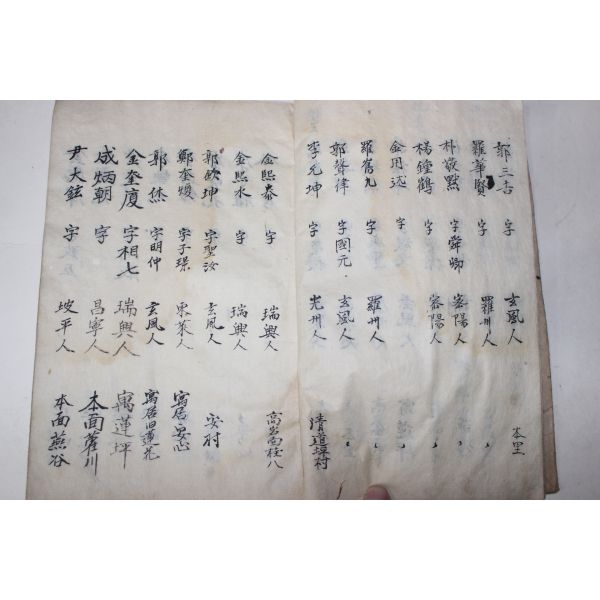 郭三吉 字 玄風人 本里
羅華賢 字 羅州人 〃
朴敬黙 字舜卿 密陽人 〃
楊鐘鶴 字 密陽人 〃
金用 字
羅 九 字 羅州人 〃
郭聲律 字國元 玄風人 〃
李元坤 字 光州人 清道坪村
金熙泰 字 瑞興人 高岩面桂八
金熙水 字 瑞興人
郭欽坤 字聖汝 玄風人 安村
鄭奎煥 字子 東萊人 寓居安心
郭烋 字明仲 玄風人 寓居旧蓮花
金奎廈 字相七 瑞興人 寓蓮坪
成炳朝 字 昌寧人 本面 川
尹大鉉 字 坡平人 本面燕谷